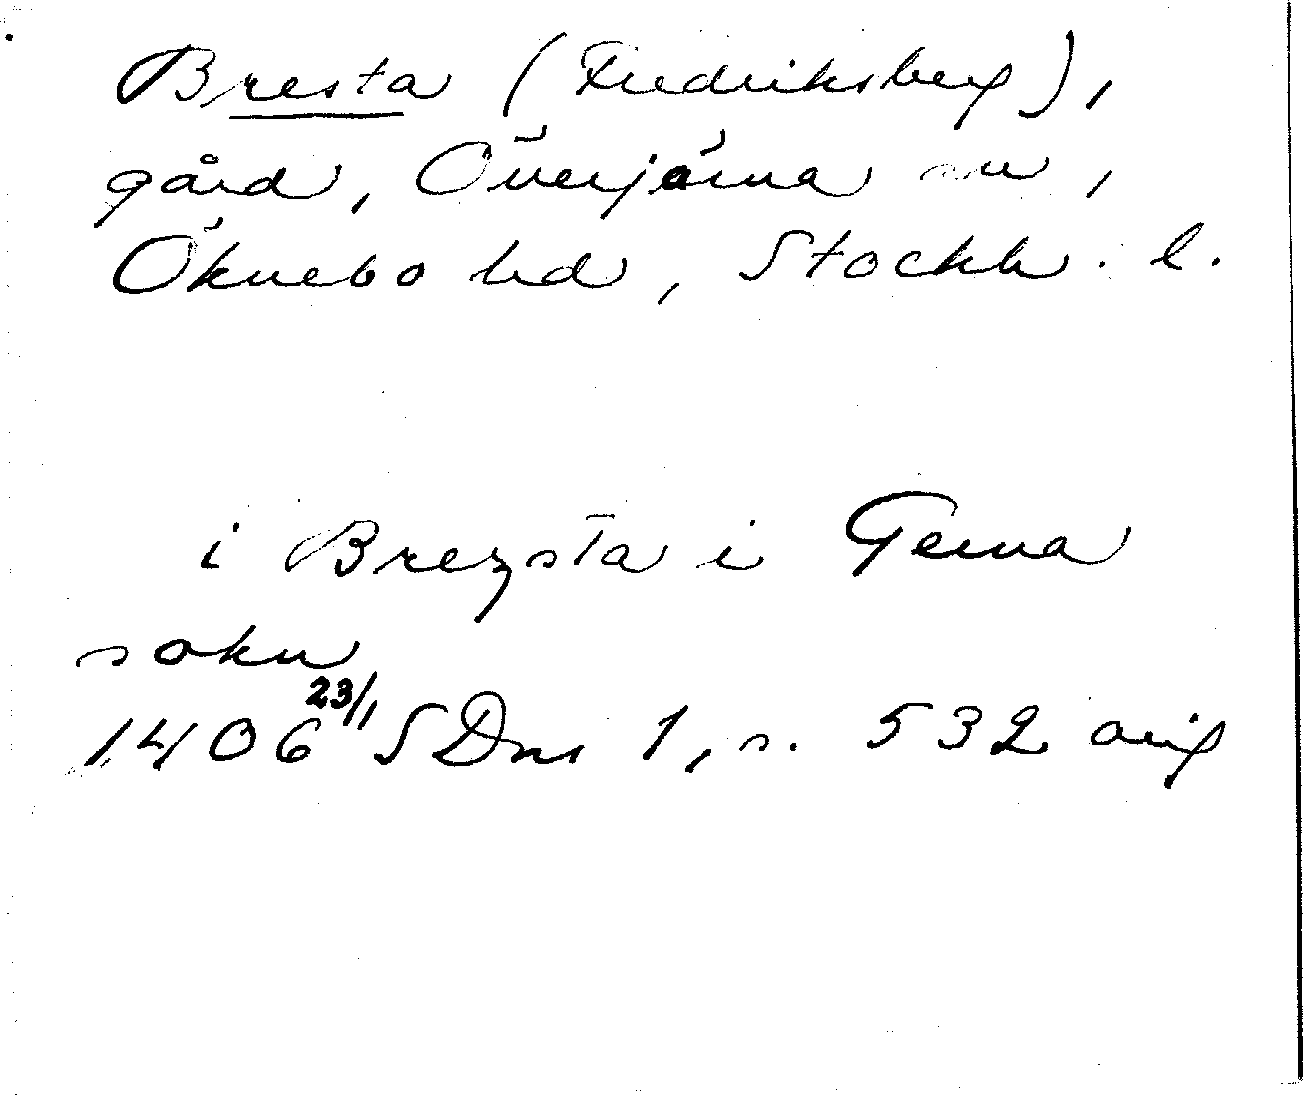 Bresta (Fredriksberg),
gård, Överjärna sn,
Öknebo hd, Stockh. l.
i Brezsta i Gerna
sokn
1406 23/1 SDns 1, s. 532 orig